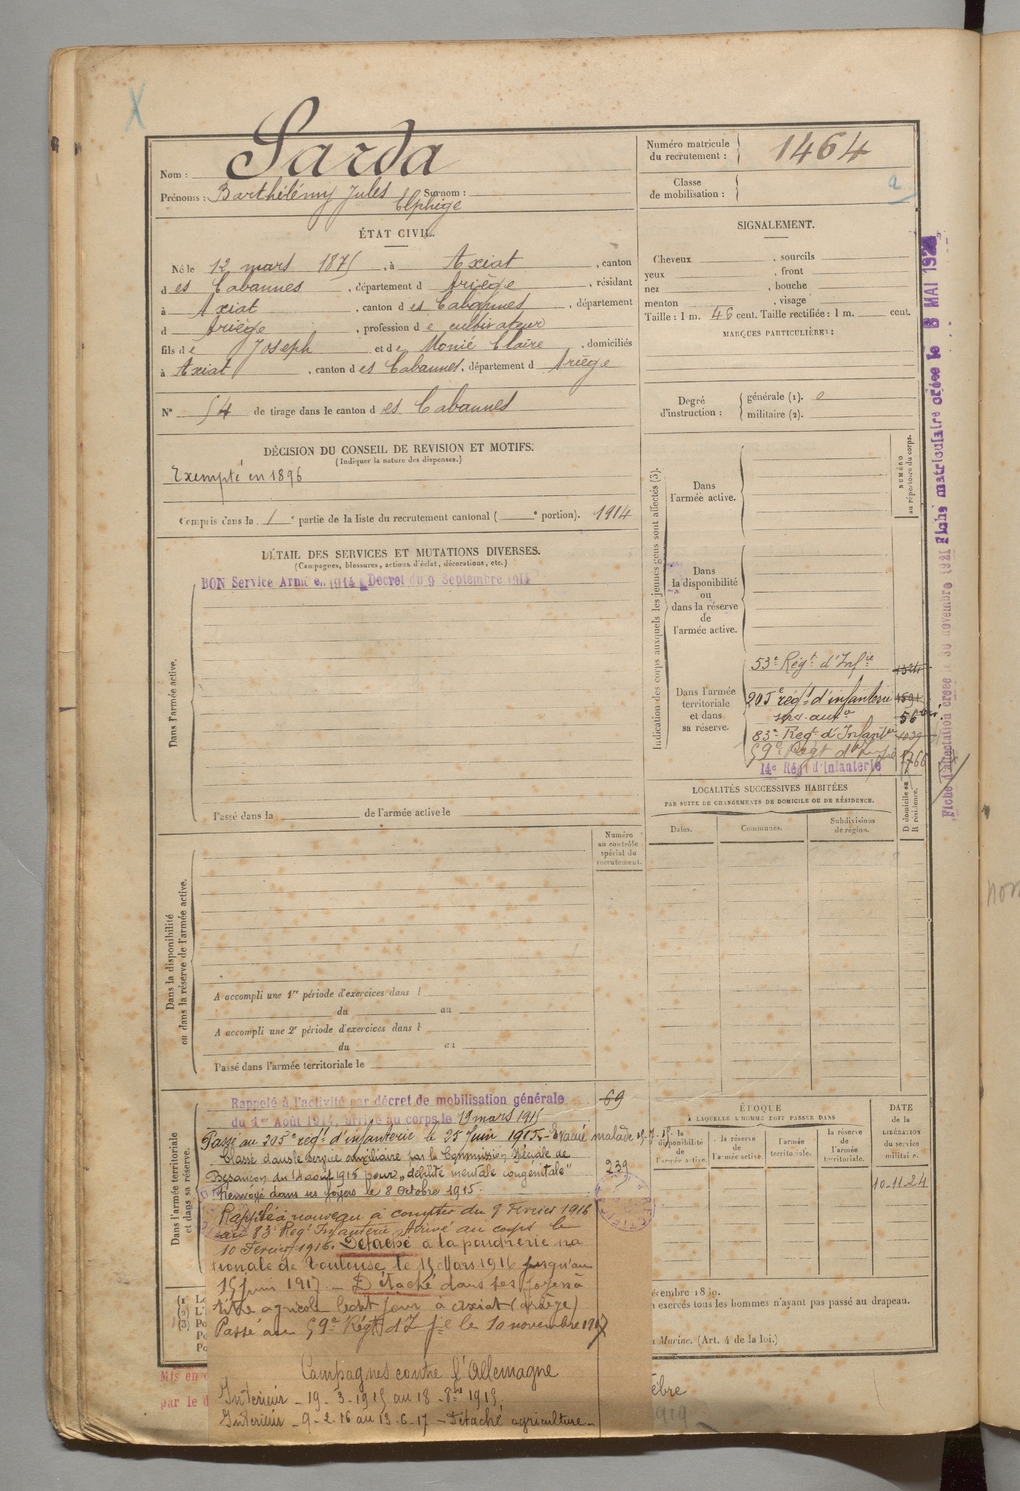 Nom : Sarda
Prénoms : Barthélémy Jules Elphège Surnom :
Numéro matricule du recrutement : 1464
Classe de mobilisation :
ÉTAT CIVIL.
Né le 12 mars 1875, à Axiat, canton
des Cabannes, département d Ariège, résidant
à Axiat, canton des Cabannes, département
d Ariège, profession de cultivateur
fils de Joseph et de Monié Claire, domiciliés
à Axiat, canton des Cabannes, département d Ariège
N° 54 de tirage dans le canton des Cabannes
SIGNALEMENT.
Cheveux , sourcils
yeux , front
nez , bouche
menton , visage
Taille : 1 m. 46 cent. Taille rectifiée : 1 m. cent.
MARQUES PARTICULIÈRES :
Degré d'instruction : générale (1). 0
militaire (2).
DÉCISION DU CONSEIL DE REVISION ET MOTIFS.
(Indiquer la nature des dispenses.)
Exempté en 1896
Compris dans la 1e partie de la liste du recrutement cantonal ( e portion). 1914
DÉTAIL DES SERVICES ET MUTATIONS DIVERSES.
(Campagnes, blessures, actions d'éclat, décorations, etc.)
BON Service Armé en 1914 Décret du 9 Septembre 1914
Dans l'armée active.
Passé dans la de l'armée active le
Numéro au contrôle spécial du recrutement.
Dans la disponibilité ou dans la réserve de l'armée active.
A accompli une 1re période d'exercices dans l
du au
A accompli une 2e période d'exercices dans l
du au
Passé dans l'armée territoriale le
Dans l'armée territoriale et dans sa réserve.
Rappelé à l'activité par décret de mobilisation générale 69
du 1er Août 1914, arrivé au corps le 19 mars 1915
Passé au 205e régt d'infanterie le 25 Juin 1915. Evacué malade
Classé dans le service auxiliaire par la Commission Spéciale de
Besançon du août 1915 pour "débilité mentale congénitale" 239
Renvoyé dans ses foyers le 8 Octobre 1915.
Rappelé à nouveau à compter du 9 Février 1916
au 83e Regt Infanterie Arrivé au corps le
10 Février 1916. Détaché à la poudrerie na
tionale de Toulouse le 15 Mars 1916 jusqu'au
15 juin 1917 - Détaché dans ses foyers à
titre agricole le dit jour à Axiat (Ariège)
Passé au 59e Régt d'Inf ie le 10 novembre 1917
Campagnes contre l'Allemagne
Intérieur - 19-3-1915 au 18-8bre 1915,
Intérieur - 9-2-16 au 13-6-17 - Détaché agriculture -
Indication des corps auxquels les jeunes gens sont affectés (3).
NUMÉRO au répertoire du corps.
Dans l'armée active.
Dans la disponibilité ou dans la réserve de l'armée active.
Dans l'armée territoriale et dans sa réserve.
53e Régt d'Infie
205e régt d'infanterie
83e Regt d'Infanterie
59e Régt d'Infie
14e Régt d'Infanterie
LOCALITÉS SUCCESSIVES HABITÉES
PAR SUITE DE CHANGEMENTS DE DOMICILE OU DE RÉSIDENCE.
Dates. Communes. Subdivisions de région. D domicile ou R résidence.
ÉPOQUE
A LAQUELLE L'HOMME DOIT PASSER DANS
la disponibilité de l'armée active.
la réserve de l'armée active.
l'armée territoriale.
la réserve de l'armée territoriale.
DATE de la LIBÉRATION du service militaire.
10-11-24
n exercés tous les hommes n'ayant pas passé au drapeau.
Marine. (Art. 4 de la loi.)
Fiche matriculaire créée le 8 MAI
Fiche d'affectation créée le 30 novembre 1921
Mis en
par le d